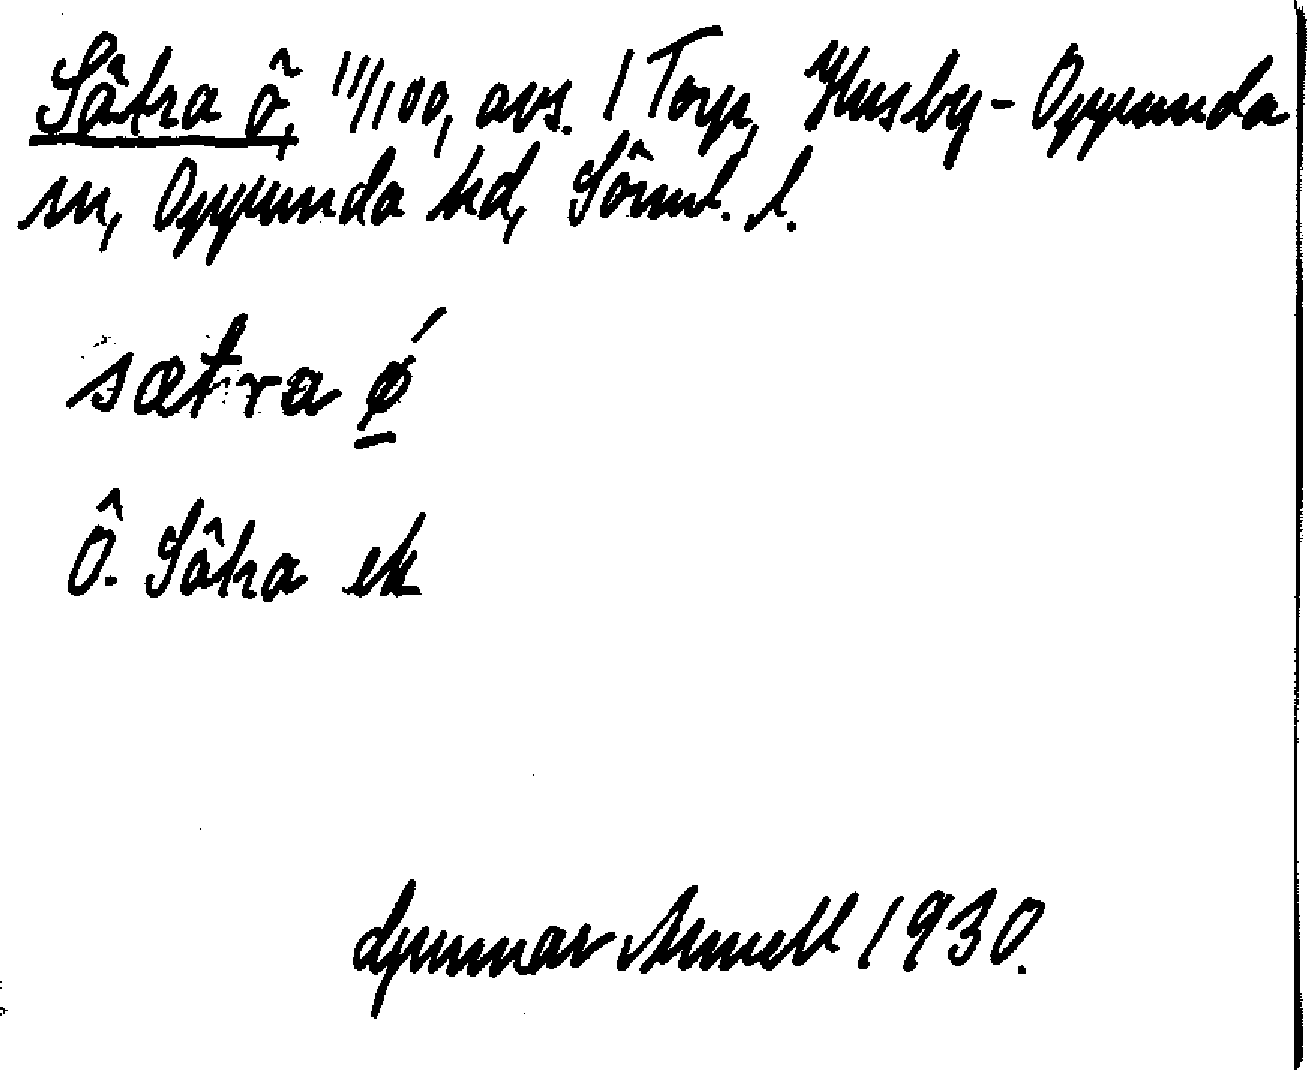 Sätra ö, 11/100, avs. 1 Torp, Husby-Oppunda
sn, Oppunda hd, Söml. l.
sætra ǿ
Ö. Sätra ek
Gunnar 1930.